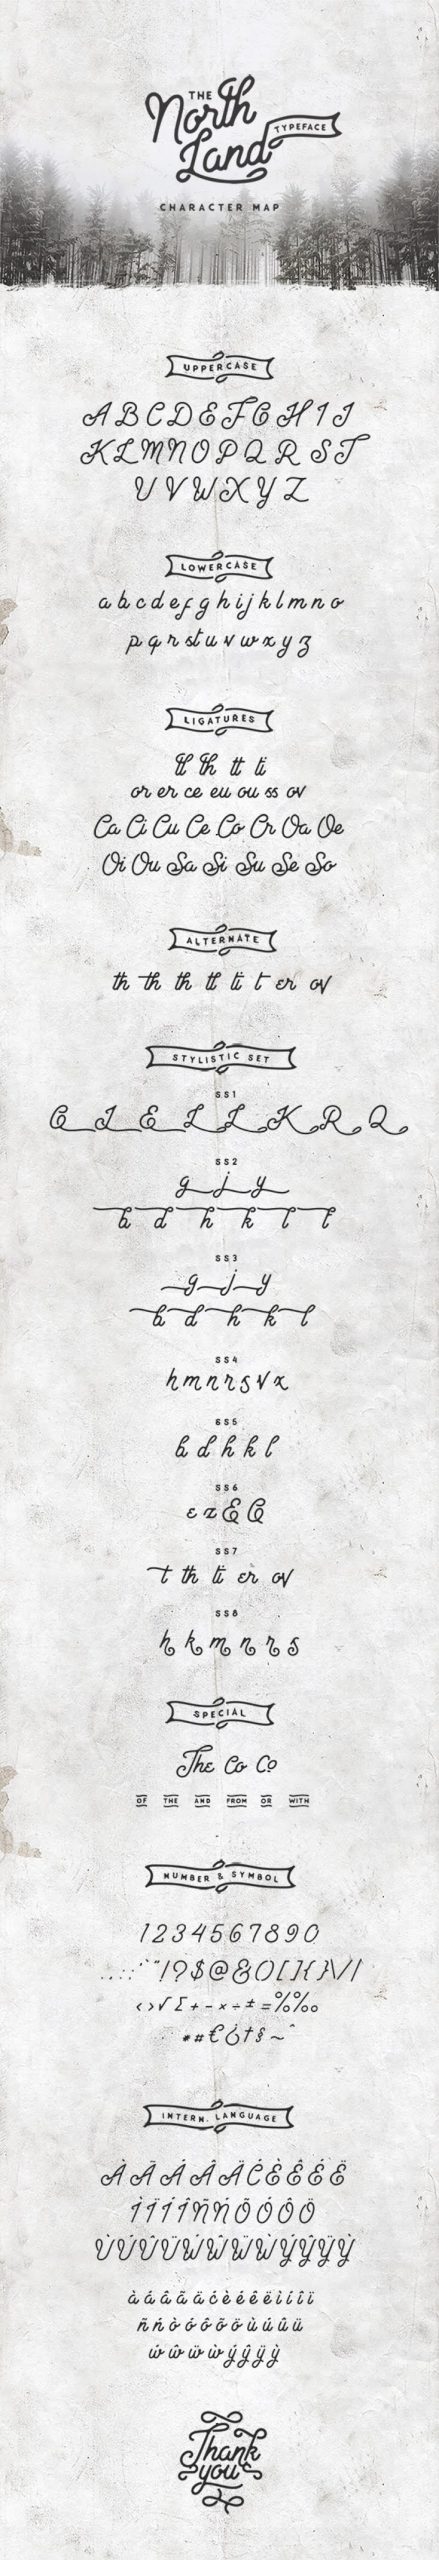 THE
North
Land
TYPEFACE
CHARACTER MAP
UPPERCASE
A B C D E F G H I J
K L M N O P Q R S T
U V W X Y Z
LOWERCASE
a b c d e f g h i j k l m n o
p q r s t u v w x y z
LIGATURES
tl th tt ti
or er ce eu ou ss ov
Ca Ci Cu Ce Co Cr Oa Oe
Oi Ou Sa Si Su Se So
ALTERNATE
th th th tl ti t er ov
STYLISTIC SET
SS1
G J E L L K R Q
SS2
g j y
b d h k l t
SS3
g j y
b d h k l
SS4
h m n r s v x
SS5
b d h k l
SS6
e z E G
SS7
t th ti er ov
SS8
h k m n r s
SPECIAL
The Co Co
OF THE AND FROM OR WITH
NUMBER & SYMBOL
1 2 3 4 5 6 7 8 9 0
. , : ; ' " ! ? $ @ & ( ) [ ] { } \ / |
< > √ Σ + - × ÷ ± = % ‰
* # € ¿ † § ~ ^
INTERN. LANGUAGE
Thank
you